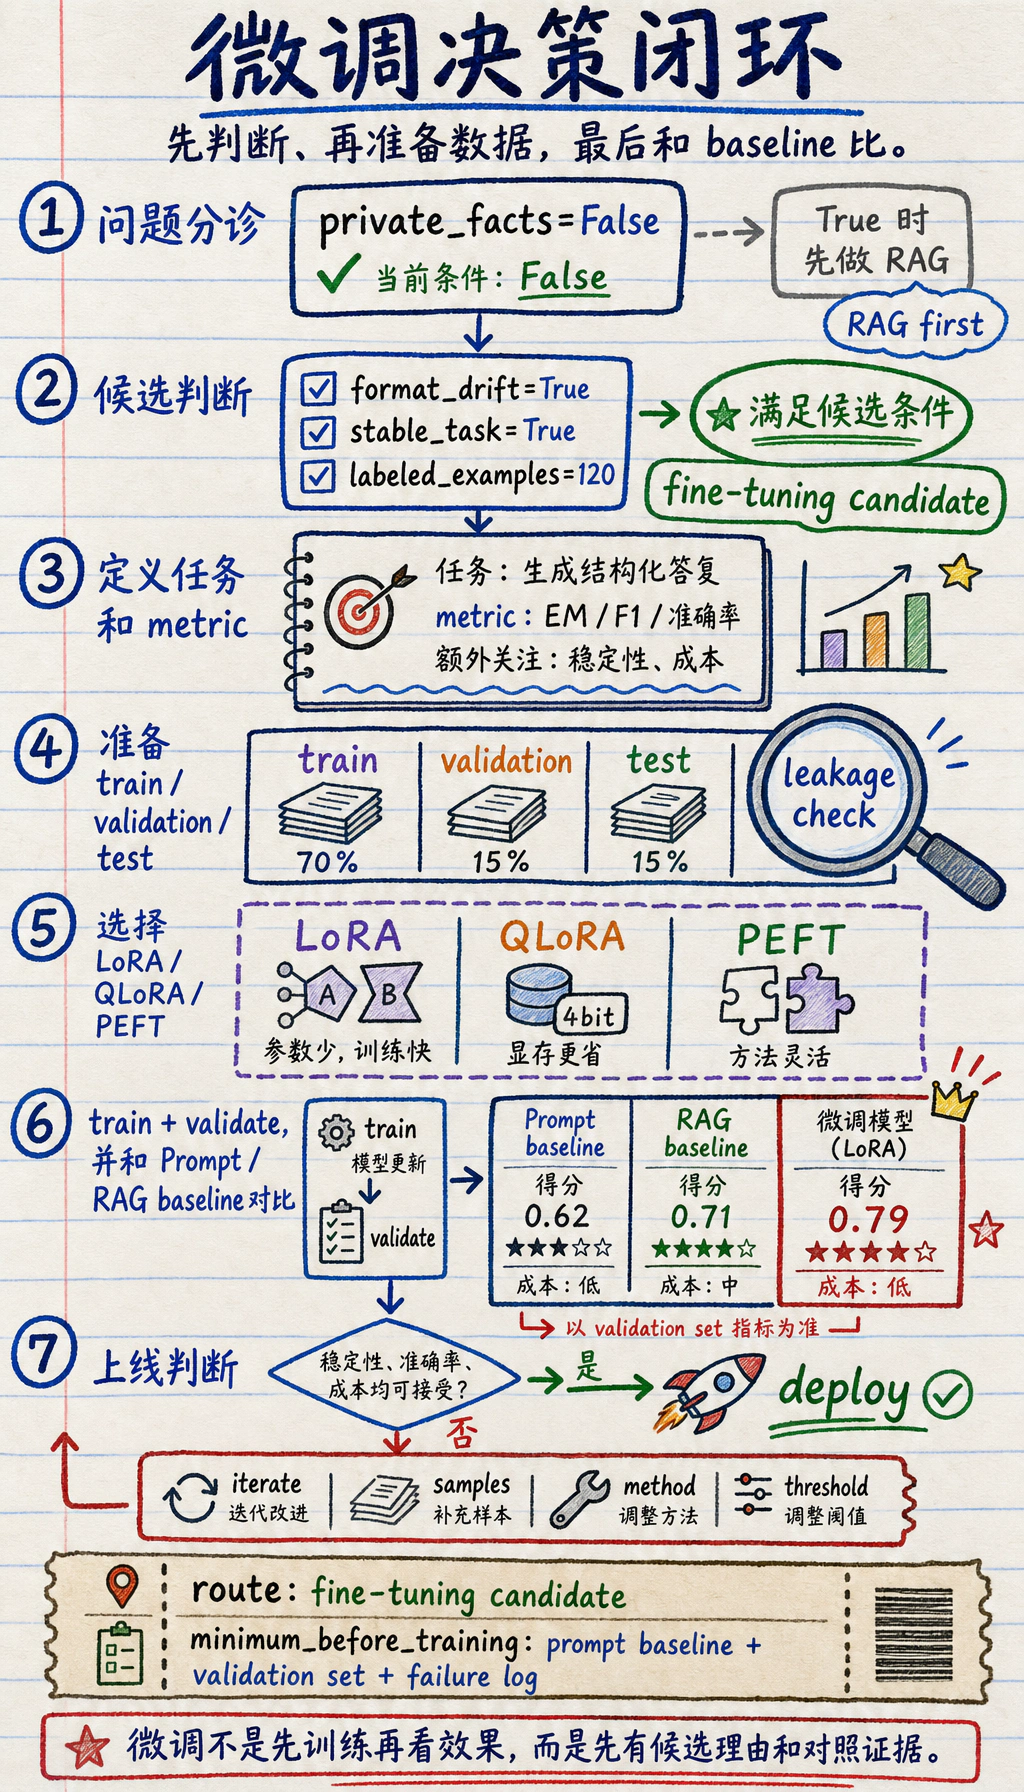 微调决策闭环
先判断、再准备数据，最后和 baseline 比。
1 问题分诊
private_facts=False
✓ 当前条件：False
True 时
先做 RAG
RAG first
2 候选判断
format_drift=True
stable_task=True
labeled_examples=120
满足候选条件
fine-tuning candidate
3 定义任务
和 metric
任务：生成结构化答复
metric：EM / F1 / 准确率
额外关注：稳定性、成本
4 准备
train /
validation /
test
train
70%
validation
15%
test
15%
leakage
check
5 选择
LoRA /
QLoRA /
PEFT
LoRA
A B
参数少，训练快
QLoRA
4bit
显存更省
PEFT
方法灵活
6 train + validate,
并和 Prompt /
RAG baseline 对比
train
模型更新
validate
Prompt
baseline
得分
0.62
★★★☆☆
成本：低
RAG
baseline
得分
0.71
★★★★☆
成本：中
微调模型
(LoRA)
得分
0.79
★★★★☆
成本：低
以 validation set 指标为准
7 上线判断
稳定性、准确率、
成本均可接受？
是
deploy
否
iterate
迭代改进
samples
补充样本
method
调整方法
threshold
调整阈值
route: fine-tuning candidate
minimum_before_training: prompt baseline +
validation set + failure log
微调不是先训练再看效果，而是先有候选理由和对照证据。